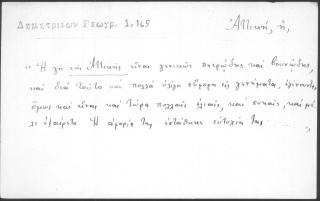 Δημητριέων Γεωγρ. 1, 165
Ἀττική, ἡ,
"Ἡ γῆ τῆς Ἀττικῆς εἶναι γενικῶς πετρώδης καὶ βουνώδης,
καὶ διὰ τοῦτο καὶ πολλὰ ὀλίγο εὔφορη εἰς γεννήματα,
ὅμως καὶ εἶναι καὶ τώρα πολλαὶς ἐλιαίς, καὶ συκαίς, καὶ μέ-
λι ἐξαίρετο. Ἡ ἀφορία της ἐστάθηκε εὐτυχία της